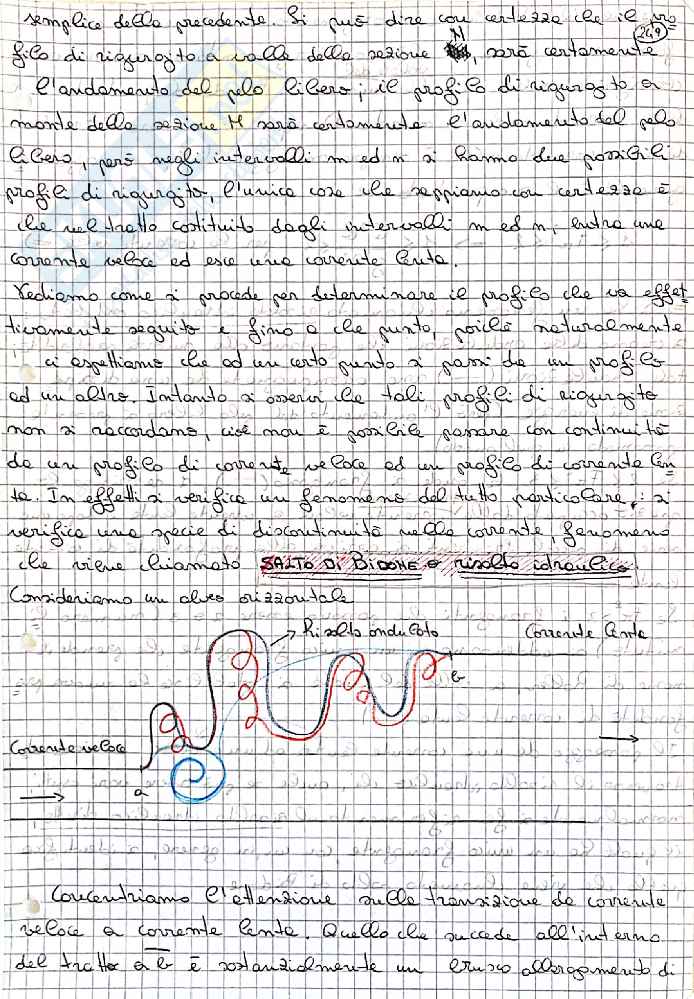 semplice della precedente. Si può dire con certezza che il pro
249
filo di rigurgito a valle della sezione M, sarà certamente
l'andamento del pelo libero; il profilo di rigurgito a
monte della sezione M sarà certamente l'andamento del pelo
libero, però negli intervalli m ed n si hanno due possibili
profili di rigurgito, l'unica cosa che sappiamo con certezza è
che nel tratto costituito dagli intervalli m ed n, entra una
corrente veloce ed esce una corrente lenta.
Vediamo come si procede per determinare il profilo che va effet
tivamente seguito e fino a che punto, poichè naturalmente
ci aspettiamo che ad un certo punto si passi da un profilo
ad un altro. Intanto si osservi che tali profili di rigurgito
non si raccordano, cioè non è possibile passare con continuità
da un profilo di corrente veloce ad un profilo di corrente len
ta. In effetti si verifica un fenomeno del tutto particolare: si
verifica una specie di discontinuità nella corrente, fenomeno
che viene chiamato SALTO DI BIDONE o risalto idraulico.
Consideriamo un alveo orizzontale
Risalto ondulato
Corrente lenta
b
Corrente veloce
a
Concentriamo l'attenzione sulla transizione da corrente
veloce a corrente lenta. Quello che succede all'interno
del tratto ab è sostanzialmente un brusco allargamento di